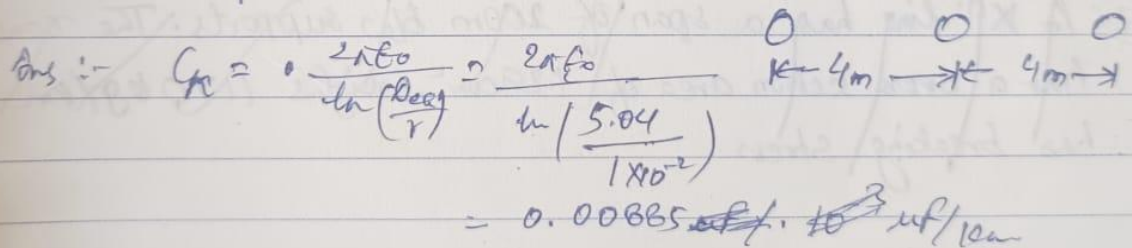 Ans :- Cn = 2πε₀ / ln(Deq/r) = 2πε₀ / ln(5.04 / 1×10⁻²) |← 4m →|← 4m →|
= 0.00885 μf/km